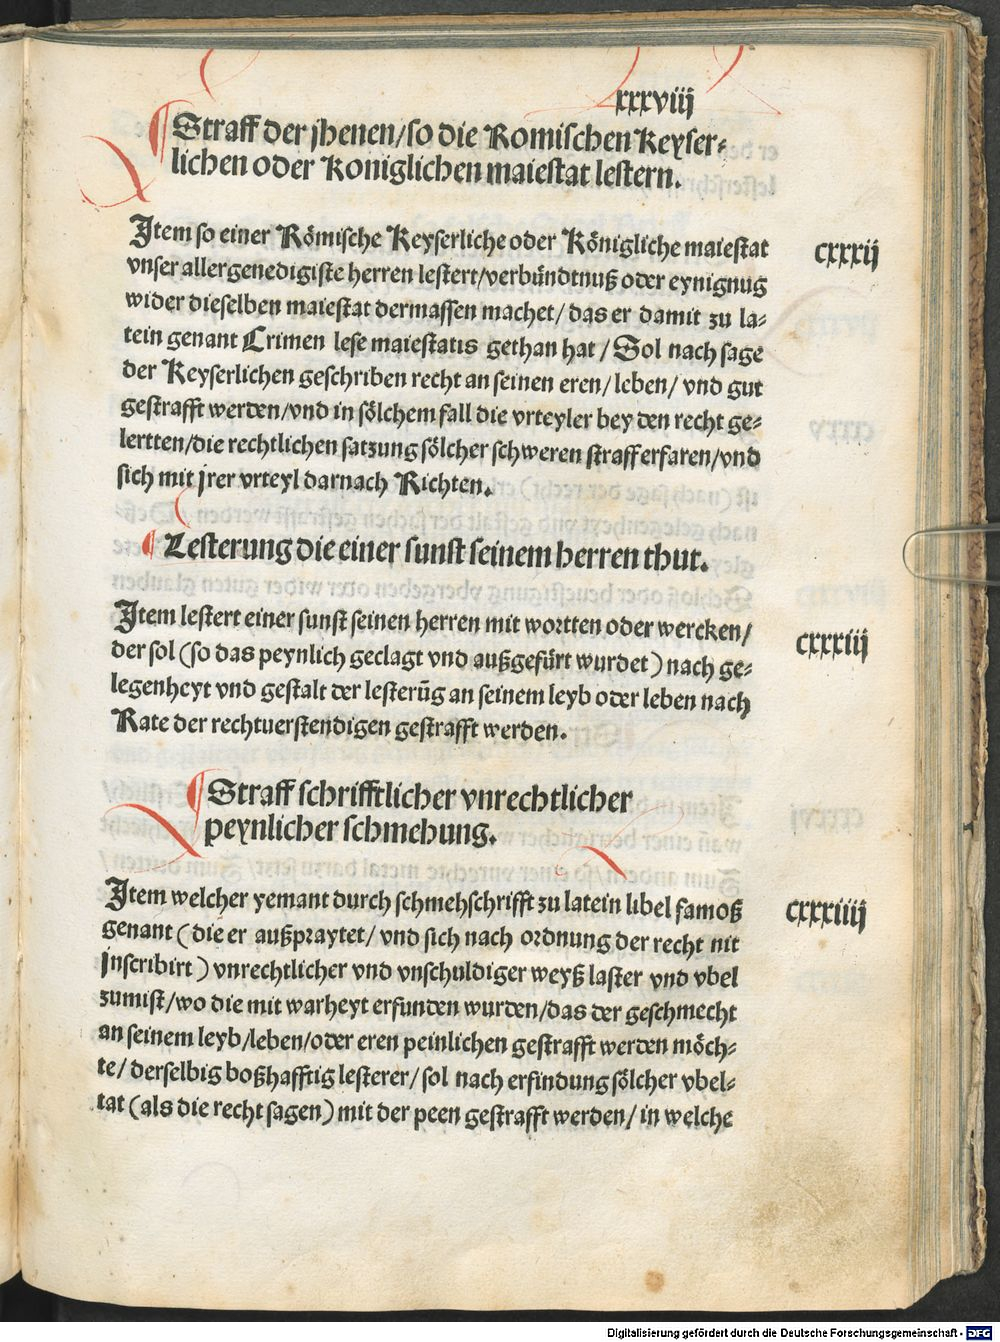 xxxviij
Straff der jhenen/so die Romischen Keyser⸗
lichen oder Koniglichen maiestat lestern.
Item so einer Römische Keyserliche oder Königliche maiestat
cxxxij
vnser allergenedigiste herren lestert/verbündtnuß oder eynignug
wider dieselben maiestat dermassen machet/das er damit zu la⸗
tein genant Crimen lese maiestatis gethan hat/Sol nach sage
der Keyserlichen geschriben recht an seinen eren/leben/vnd gut
gestrafft werden/vnd in sölchem fall die vrteyler bey den recht ge⸗
lertten/die rechtlichen satzung sölcher schweren straff erfaren/vnd
sich mit jrer vrteyl darnach Richten.
Lesterung die einer sunst seinem herren thut.
Item lestert einer sunst seinen herren mit wortten oder wercken/
cxxxiij
der sol (so das peynlich geclagt vnd außgefürt wurdet) nach ge⸗
legenheyt vnd gestalt der lesterūg an seinem leyb oder leben nach
Rate der rechtuerstendigen gestrafft werden.
Straff schrifftlicher vnrechtlicher
peynlicher schmehung.
Item welcher yemant durch schmehschrifft zu latein libel famoß
cxxxiiij
genant (die er außpraytet/vnd sich nach ordnung der recht nit
jnscribirt) vnrechtlicher vnd vnschuldiger weyß laster vnd vbel
zumist/wo die mit warheyt erfunden wurden/das der geschmecht
an seinem leyb/leben/oder eren peinlichen gestrafft werden möch⸗
te/derselbig boßhafftig lesterer/sol nach erfindung sölcher vbel⸗
tat (als die recht sagen) mit der peen gestrafft werden/in welche
Digitalisierung gefördert durch die Deutsche Forschungsgemeinschaft - DFG